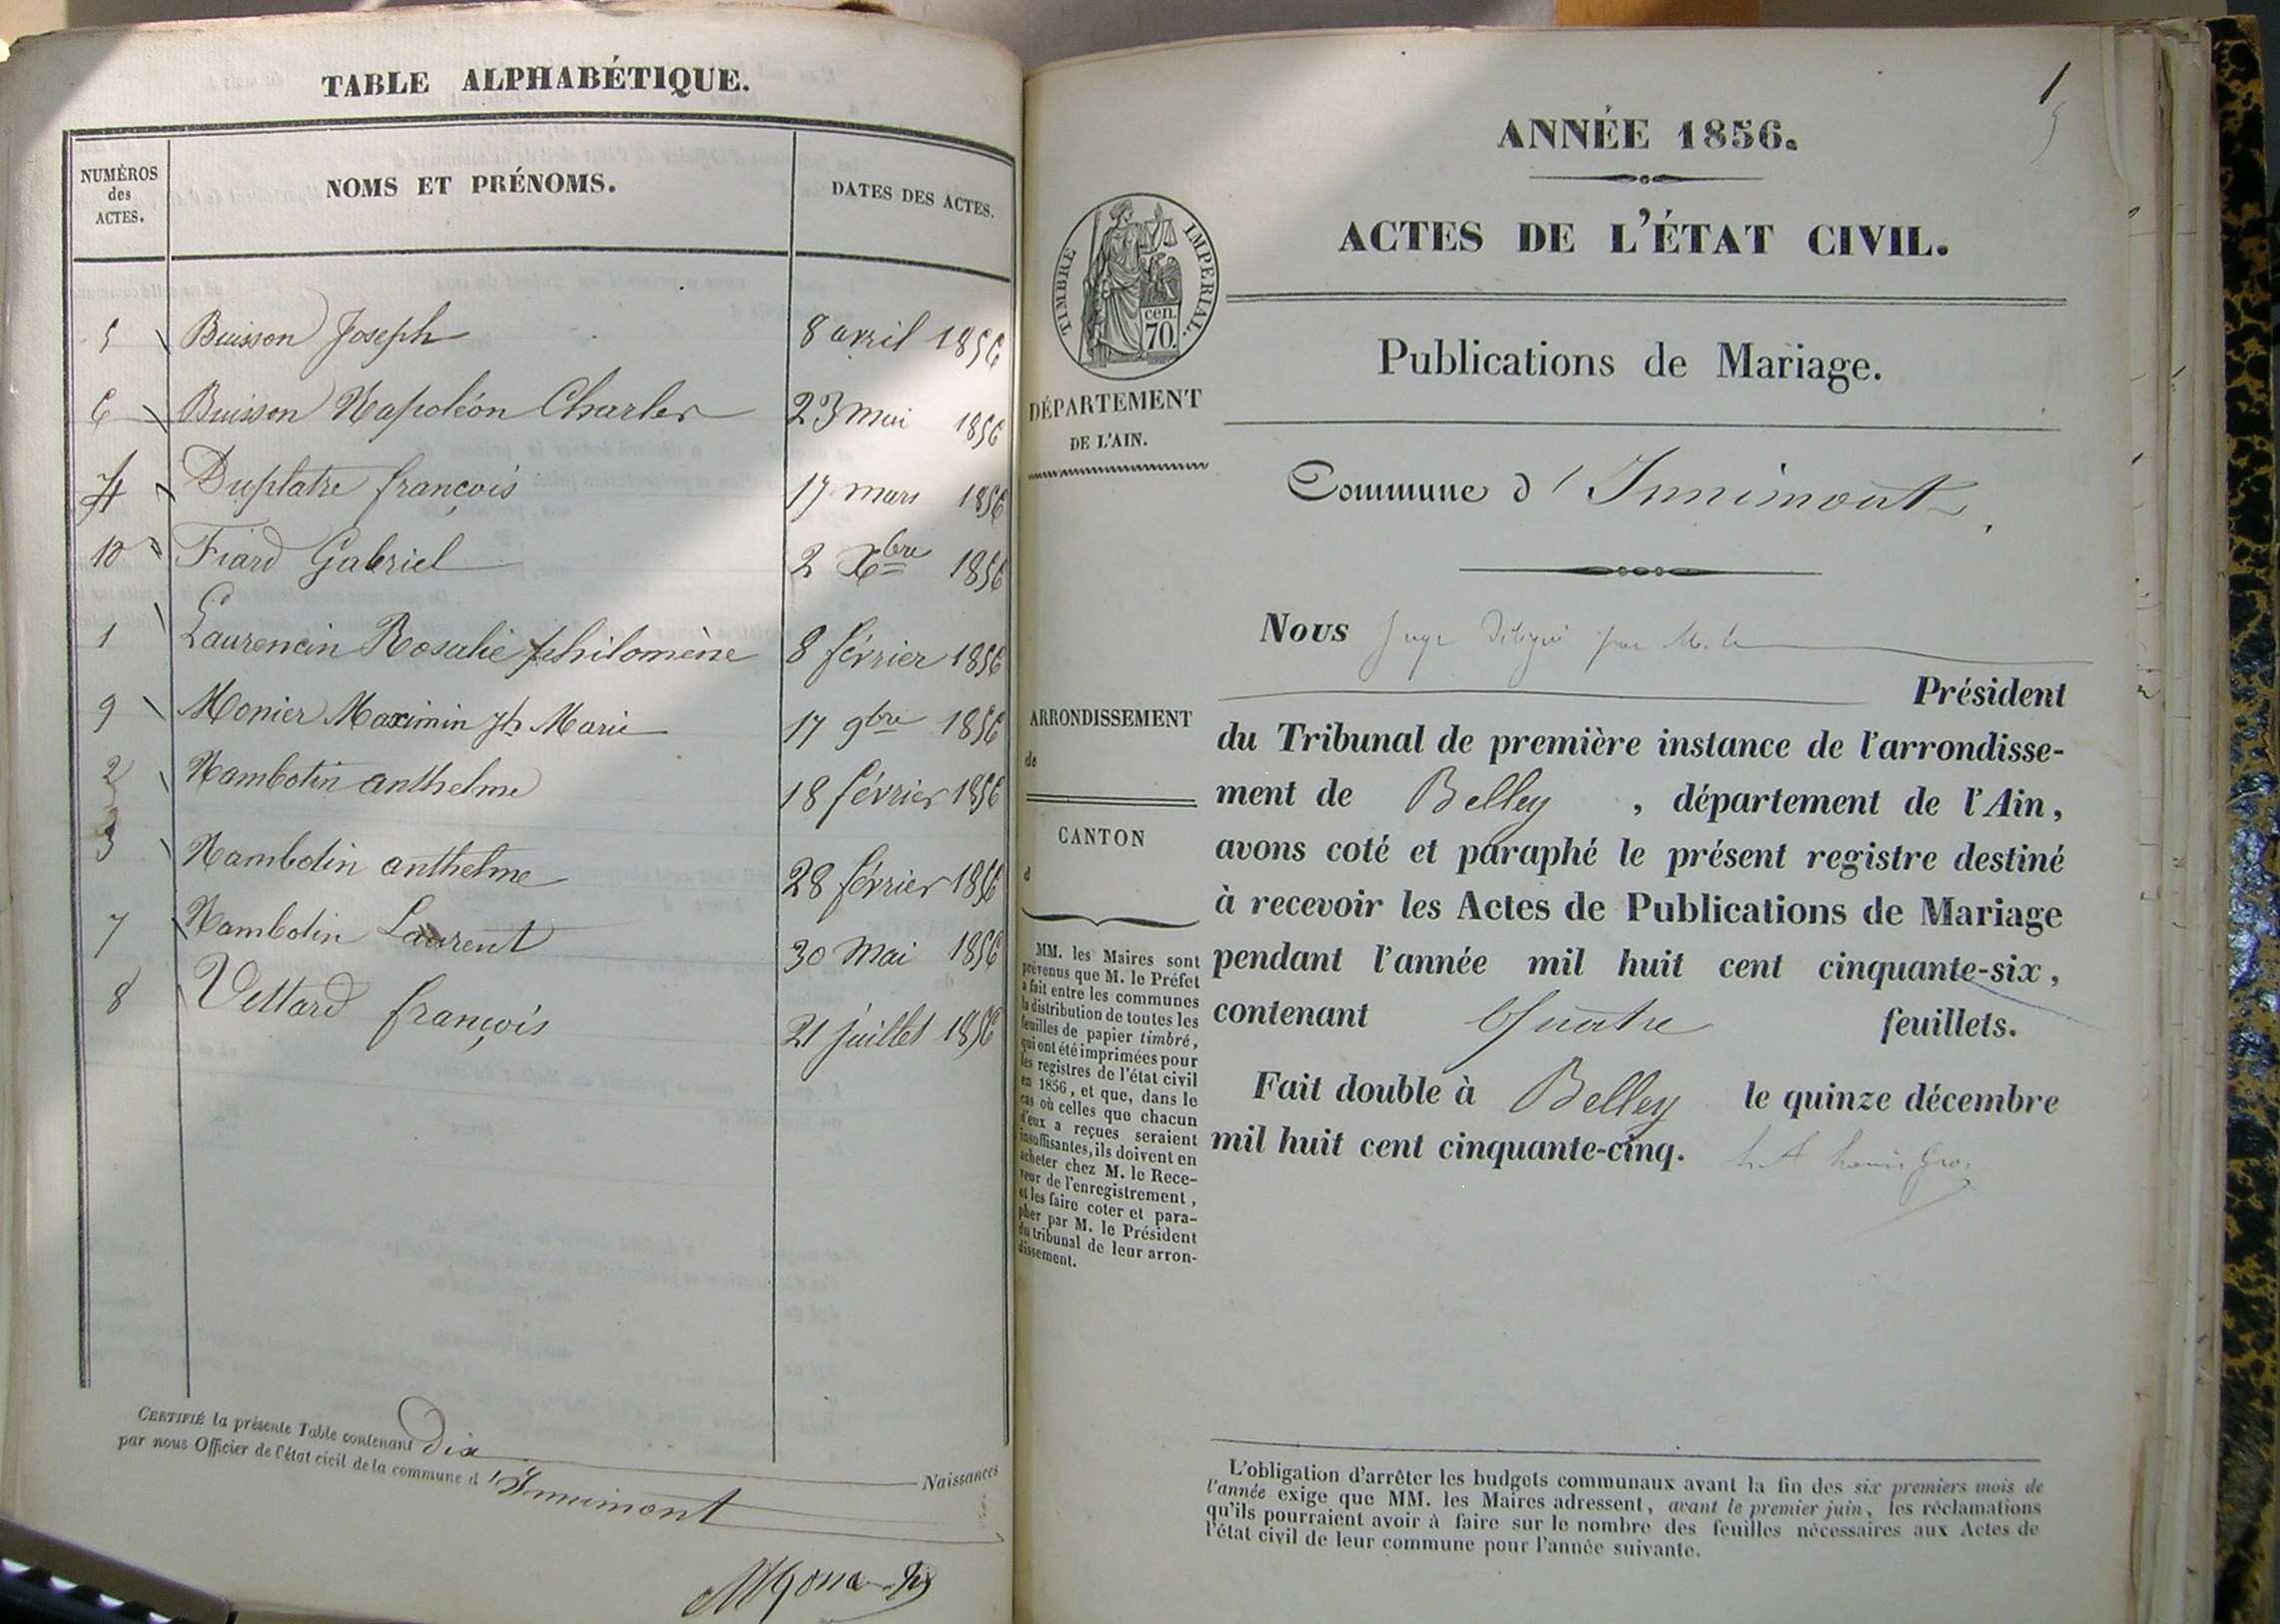 TABLE ALPHABÉTIQUE.
NUMÉROS des ACTES.
NOMS ET PRÉNOMS.
DATES DES ACTES.
5 Buisson Joseph 8 avril 1856
6 Buisson Napoléon Charles 23 mai 1856
4 Duplatre françois 17 mars 1856
10 Fiard Gabriel 2 Xbre 1856
1 Laurencin Rosalie philomène 8 février 1856
9 Monier Maximin Jh Marie 17 9bre 1856
2 Nambotin anthelme 18 février 1856
3 Nambotin anthelme 28 février 1856
7 Nambotin Laurent 30 Mai 1856
8 Vettard françois 21 juillet 1856
CERTIFIÉ la présente Table contenant Dix Naissances
par nous Officier de l'état civil de la commune d'Innimont
1
ANNÉE 1856.
ACTES DE L'ÉTAT CIVIL.
TIMBRE IMPERIAL.
cen.
70.
Publications de Mariage.
DÉPARTEMENT
DE L'AIN.
Commune d'Innimont
Nous Juge délégué par M. le
Président
ARRONDISSEMENT
de
CANTON
d
du Tribunal de première instance de l'arrondisse-
ment de Belley, département de l'Ain,
avons coté et paraphé le présent registre destiné
à recevoir les Actes de Publications de Mariage
pendant l'année mil huit cent cinquante-six,
contenant Quatre feuillets.
Fait double à Belley le quinze décembre
mil huit cent cinquante-cinq.
MM. les Maires sont
prévenus que M. le Préfet
a fait entre les communes
la distribution de toutes les
feuilles de papier timbré,
qui ont été imprimées pour
les registres de l'état civil
en 1856, et que, dans le
cas où celles que chacun
d'eux a reçues seraient
insuffisantes, ils doivent en
acheter chez M. le Rece-
veur de l'enregistrement,
et les faire coter et para-
pher par M. le Président
du tribunal de leur arron-
dissement.
L'obligation d'arrêter les budgets communaux avant la fin des six premiers mois de
l'année exige que MM. les Maires adressent, avant le premier juin, les réclamations
qu'ils pourraient avoir à faire sur le nombre des feuilles nécessaires aux Actes de
l'état civil de leur commune pour l'année suivante.